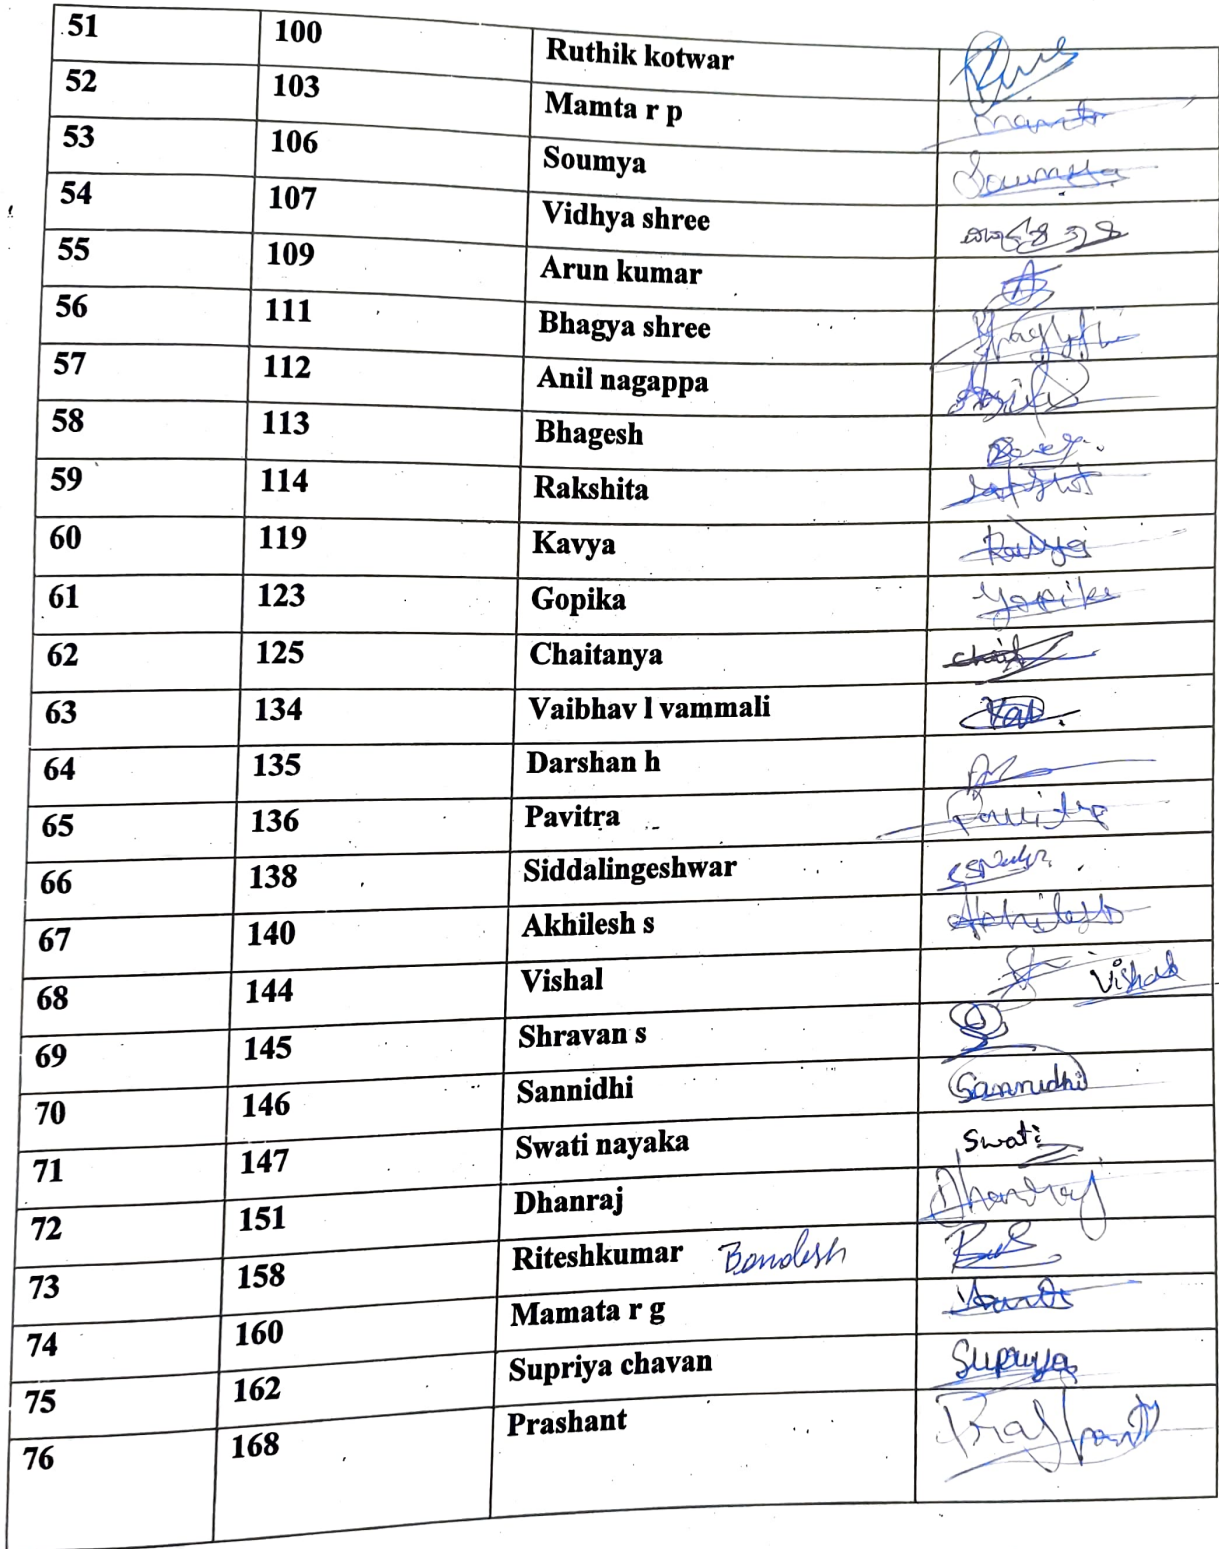 51 100 Ruthik kotwar
52 103 Mamta r p
53 106 Soumya Soumya
54 107 Vidhya shree
55 109 Arun kumar
56 111 Bhagya shree
57 112 Anil nagappa
58 113 Bhagesh
59 114 Rakshita
60 119 Kavya Kavya
61 123 Gopika Gopika
62 125 Chaitanya
63 134 Vaibhav l vammali
64 135 Darshan h
65 136 Pavitra Pavitra
66 138 Siddalingeshwar
67 140 Akhilesh s Akhilesh
68 144 Vishal Vishal
69 145 Shravan s
70 146 Sannidhi Sannidhi
71 147 Swati nayaka Swati
72 151 Dhanraj Dhanraj
73 158 Riteshkumar
74 160 Mamata r g
75 162 Supriya chavan Supriya
76 168 Prashant Prashant